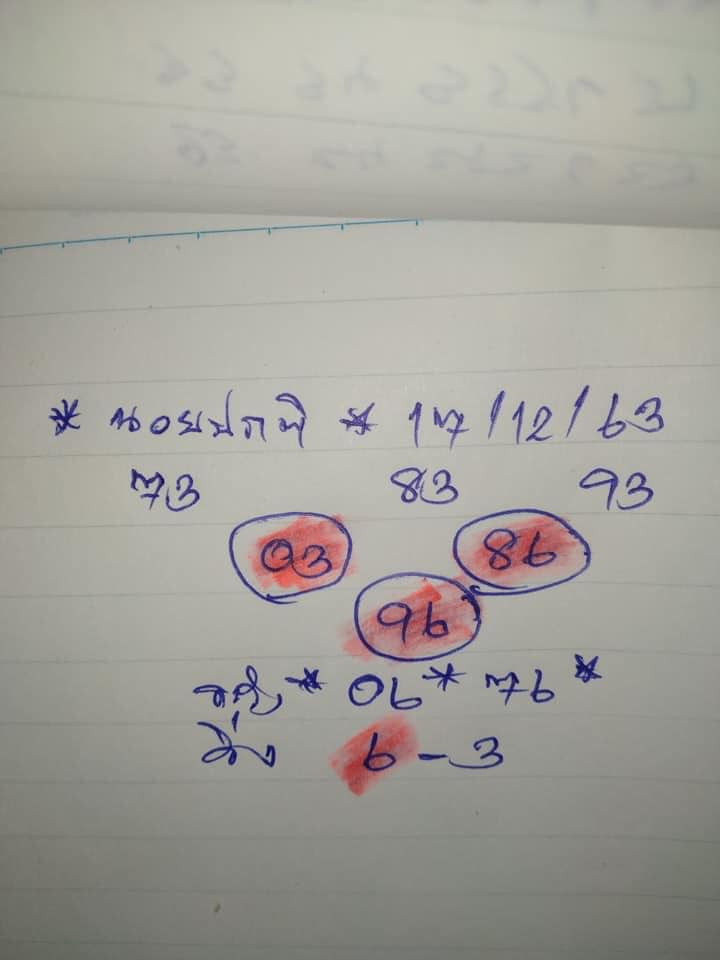 * ฮอยปกติ * 17/12/63
73 83 93
03 86
96
* 06 * 76 *
วิ่ง 6-3